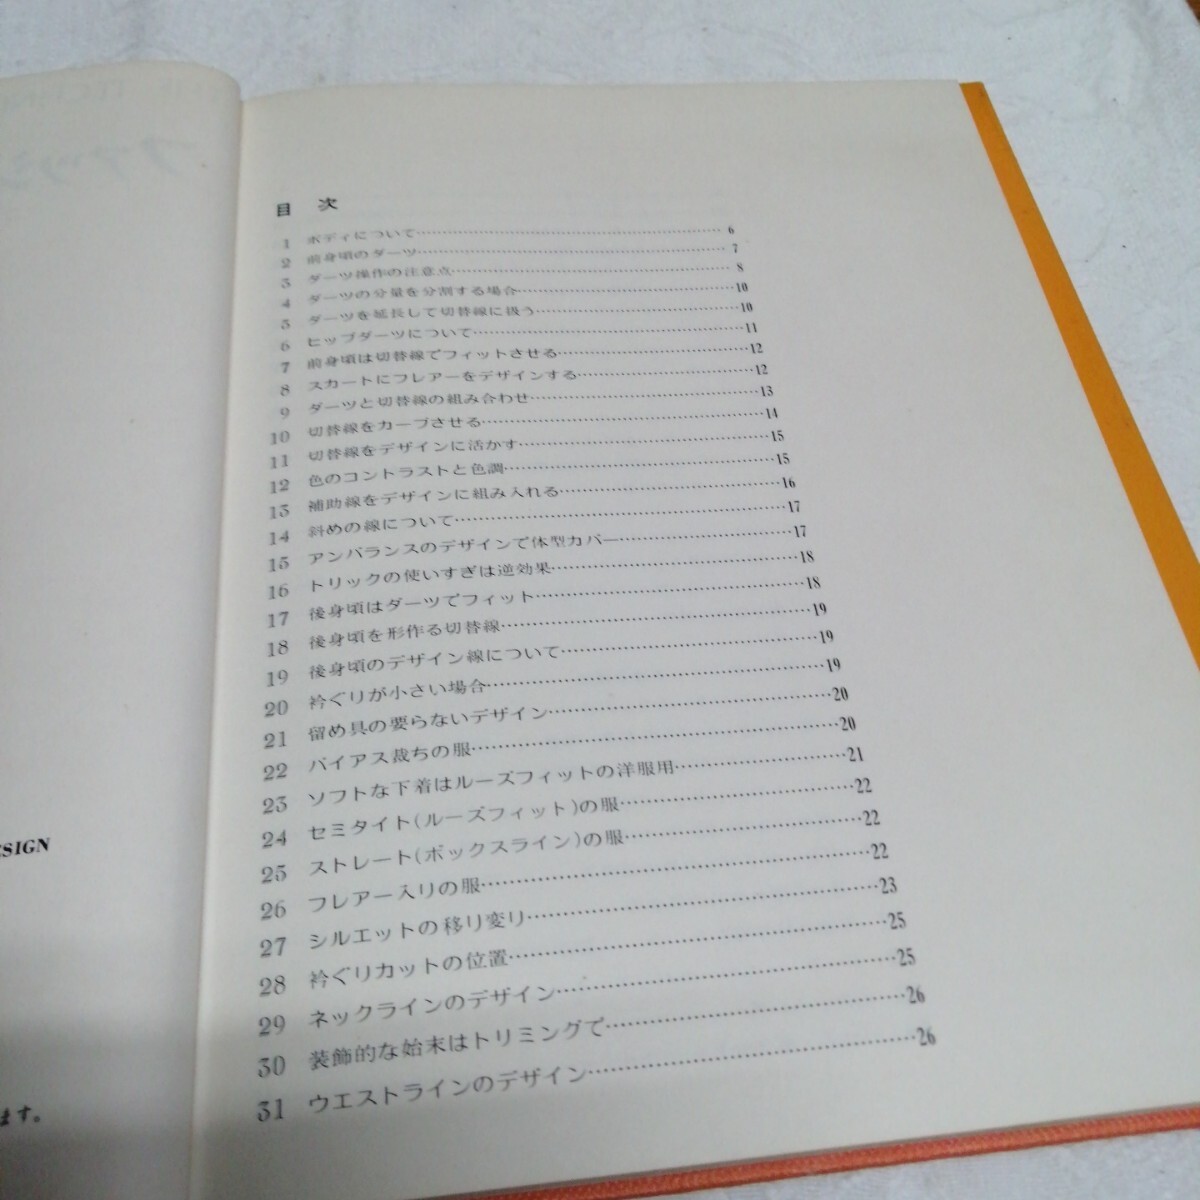 RSIGN
ます。
目 次
1 ボディについて…………6
2 前身頃のダーツ…………7
3 ダーツ操作の注意点…………8
4 ダーツの分量を分割する場合…………10
5 ダーツを延長して切替線に扱う…………10
6 ヒップダーツについて…………11
7 前身頃は切替線でフィットさせる…………12
8 スカートにフレアーをデザインする…………12
9 ダーツと切替線の組み合わせ…………13
10 切替線をカーブさせる…………14
11 切替線をデザインに活かす…………15
12 色のコントラストと色調…………15
13 補助線をデザインに組み入れる…………16
14 斜めの線について…………17
15 アンバランスのデザインで体型カバー…………17
16 トリックの使いすぎは逆効果…………18
17 後身頃はダーツでフィット…………18
18 後身頃を形作る切替線…………19
19 後身頃のデザイン線について…………19
20 衿ぐりが小さい場合…………19
21 留め具の要らないデザイン…………20
22 バイアス裁ちの服…………20
23 ソフトな下着はルーズフィットの洋服用…………21
24 セミタイト(ルーズフィット)の服…………22
25 ストレート(ボックスライン)の服…………22
26 フレアー入りの服…………22
27 シルエットの移り変り…………23
28 衿ぐりカットの位置…………25
29 ネックラインのデザイン…………25
30 装飾的な始末はトリミングで…………26
31 ウエストラインのデザイン…………26